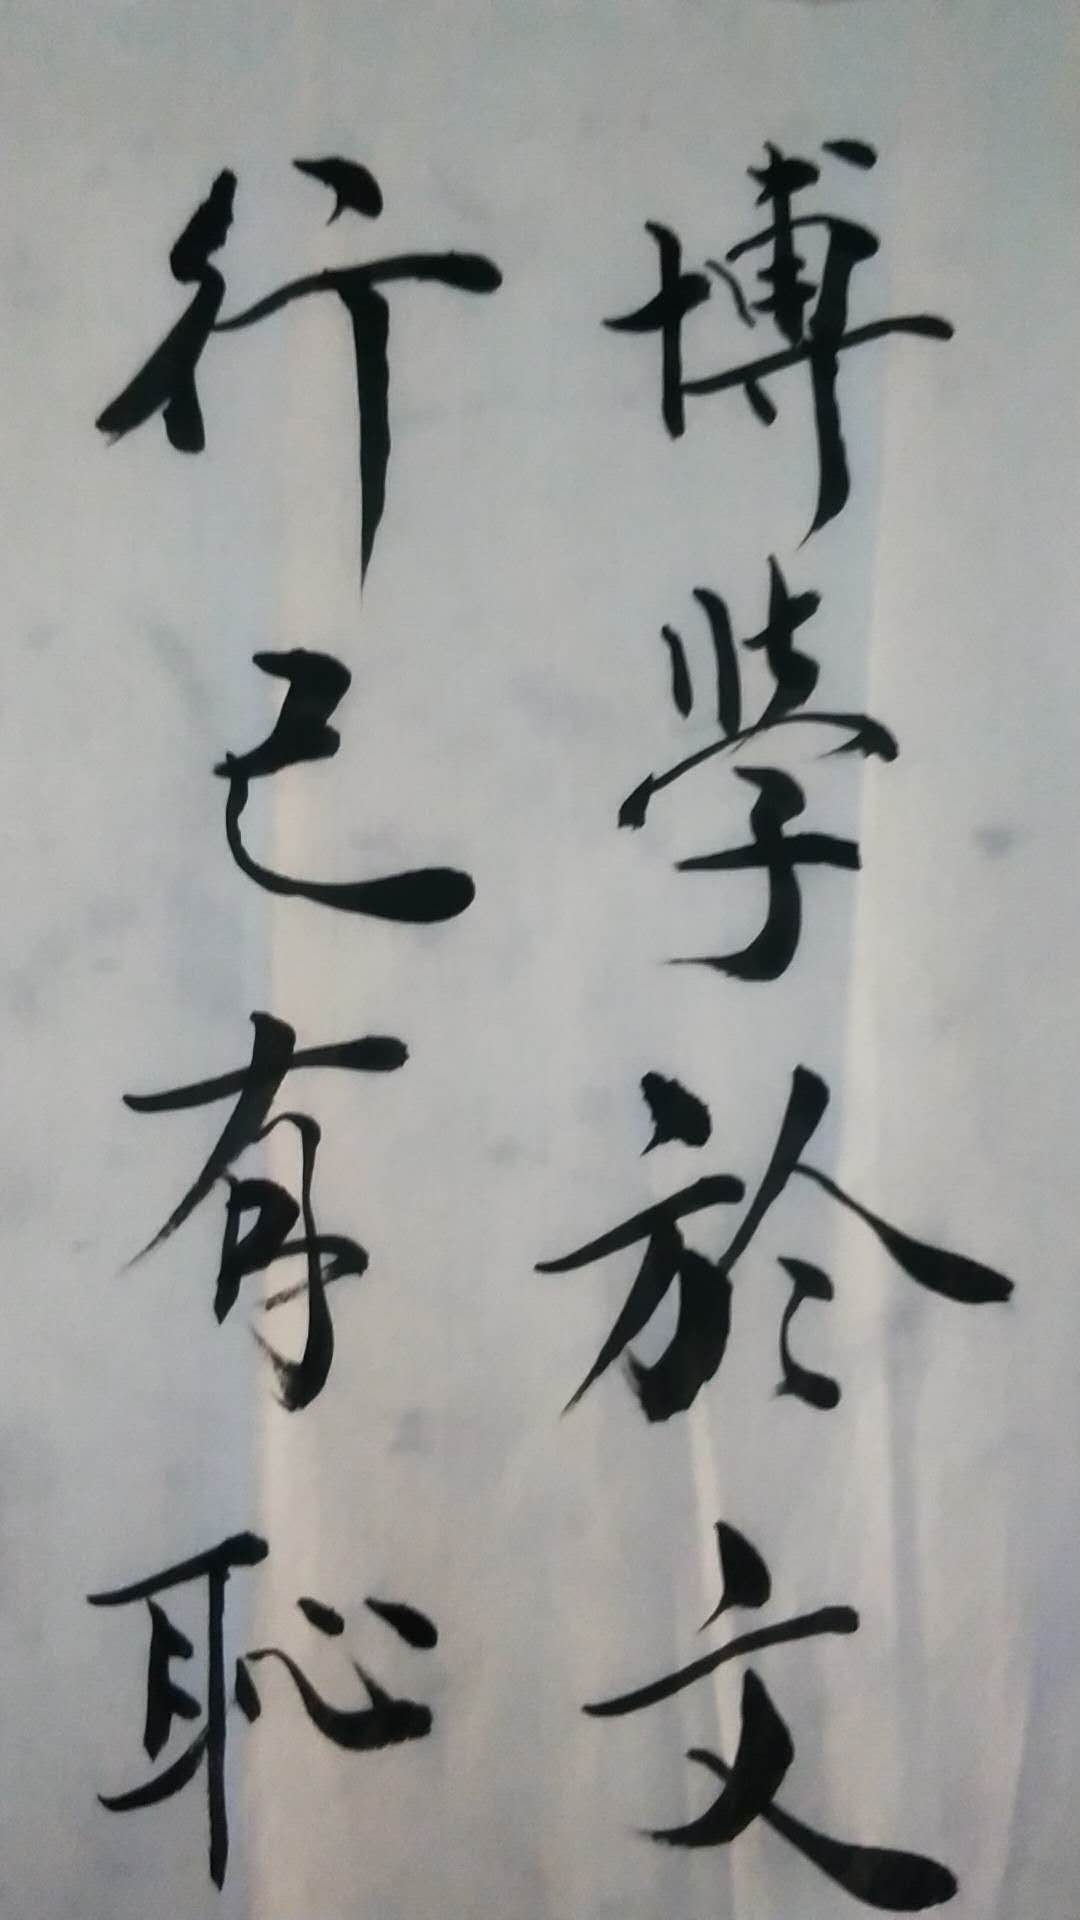 博學於文
行己有恥